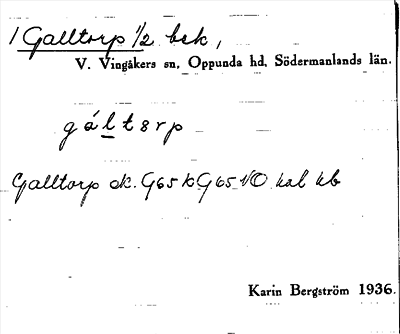 1 Galltorp 1/2 bsk,
V. Vingåkers sn, Oppunda hd, Södermanlands län.
gáltərp
Galltorp ek. G65 k G65 NO kal kb
Karin Bergström 1936.